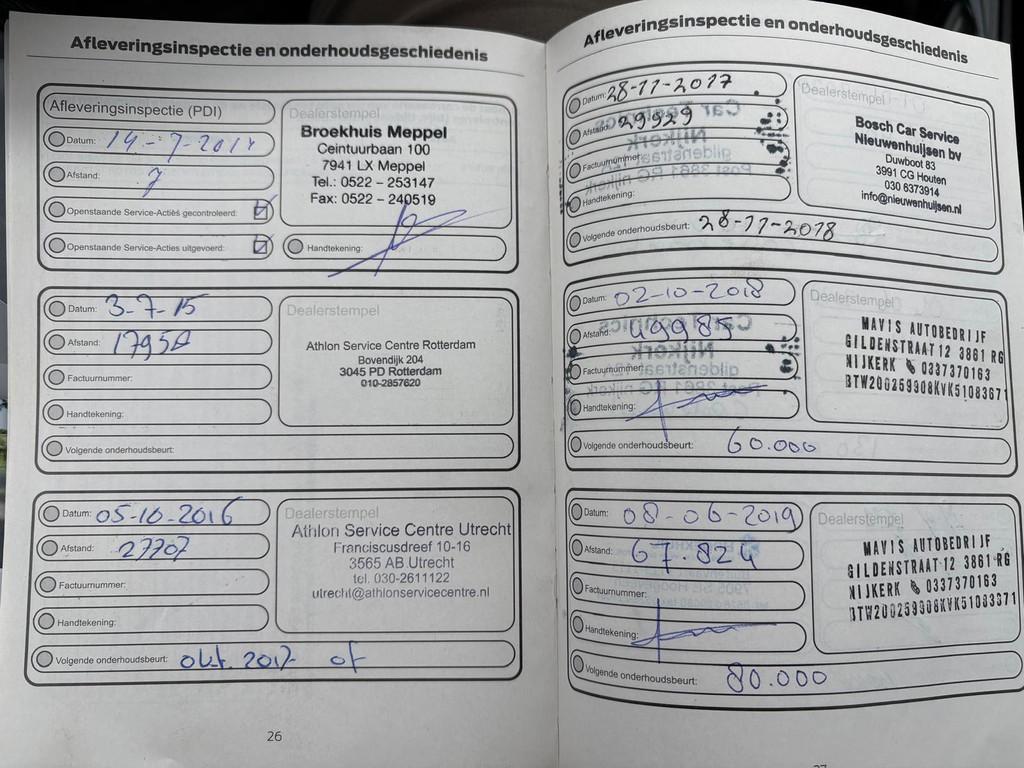 Afleveringsinspectie en onderhoudsgeschiedenis
Afleveringsinspectie (PDI)
Datum: 14-7-2014
Afstand: 7
Openstaande Service-Actiës gecontroleerd:
Openstaande Service-Acties uitgevoerd:
Dealerstempel
Broekhuis Meppel
Ceintuurbaan 100
7941 LX Meppel
Tel.: 0522 – 253147
Fax: 0522 – 240519
Handtekening:
Datum: 3-7-15
Afstand: 17950
Factuurnummer:
Handtekening:
Volgende onderhoudsbeurt:
Dealerstempel
Athlon Service Centre Rotterdam
Bovendijk 204
3045 PD Rotterdam
010-2857620
Datum: 05-10-2016
Afstand: 27707
Factuurnummer:
Handtekening:
Volgende onderhoudsbeurt: okt. 2017 of
Dealerstempel
Athlon Service Centre Utrecht
Franciscusdreef 10-16
3565 AB Utrecht
tel. 030-2611122
utrecht@athlonservicecentre.nl
26
Afleveringsinspectie en onderhoudsgeschiedenis
Datum: 28-11-2017
Afstand: 29929
Factuurnummer:
Handtekening:
Volgende onderhoudsbeurt: 28-11-2018
Dealerstempel
Bosch Car Service
Nieuwenhuijsen bv
Duwboot 83
3991 CG Houten
030 6373914
info@nieuwenhuijsen.nl
Datum: 02-10-2018
Afstand: 49985
Factuurnummer:
Handtekening:
Volgende onderhoudsbeurt: 60.000
Dealerstempel
MAVIS AUTOBEDRIJF
GILDENSTRAAT 12 3861 RG
NIJKERK 0337370163
BTW200259908KVK51083671
Datum: 08-06-2019
Afstand: 67.824
Factuurnummer:
Handtekening:
Volgende onderhoudsbeurt: 80.000
Dealerstempel
MAVIS AUTOBEDRIJF
GILDENSTRAAT 12 3861 RG
NIJKERK 0337370163